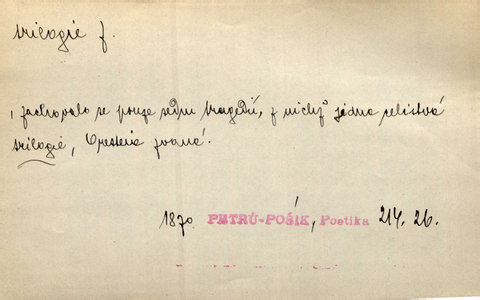 trilogie f.
, zachovalo se pouze sedm tragedií, z nichž jedna celistvá
trilogie, Oresteia zvaná.
1870 PETRŮ-POŠÍK, Poetika 214. 26.